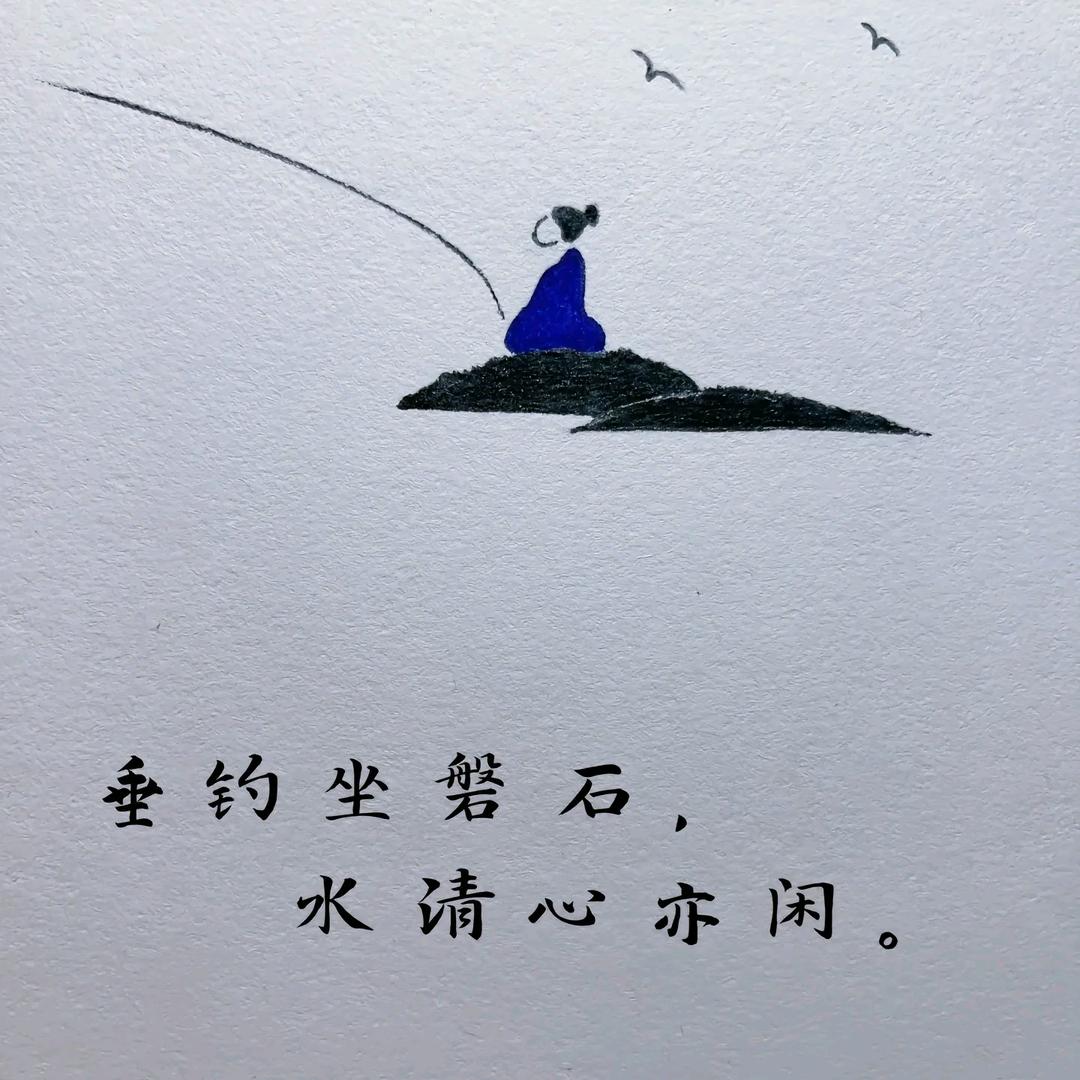 垂钓坐磐石，
水清心亦闲。